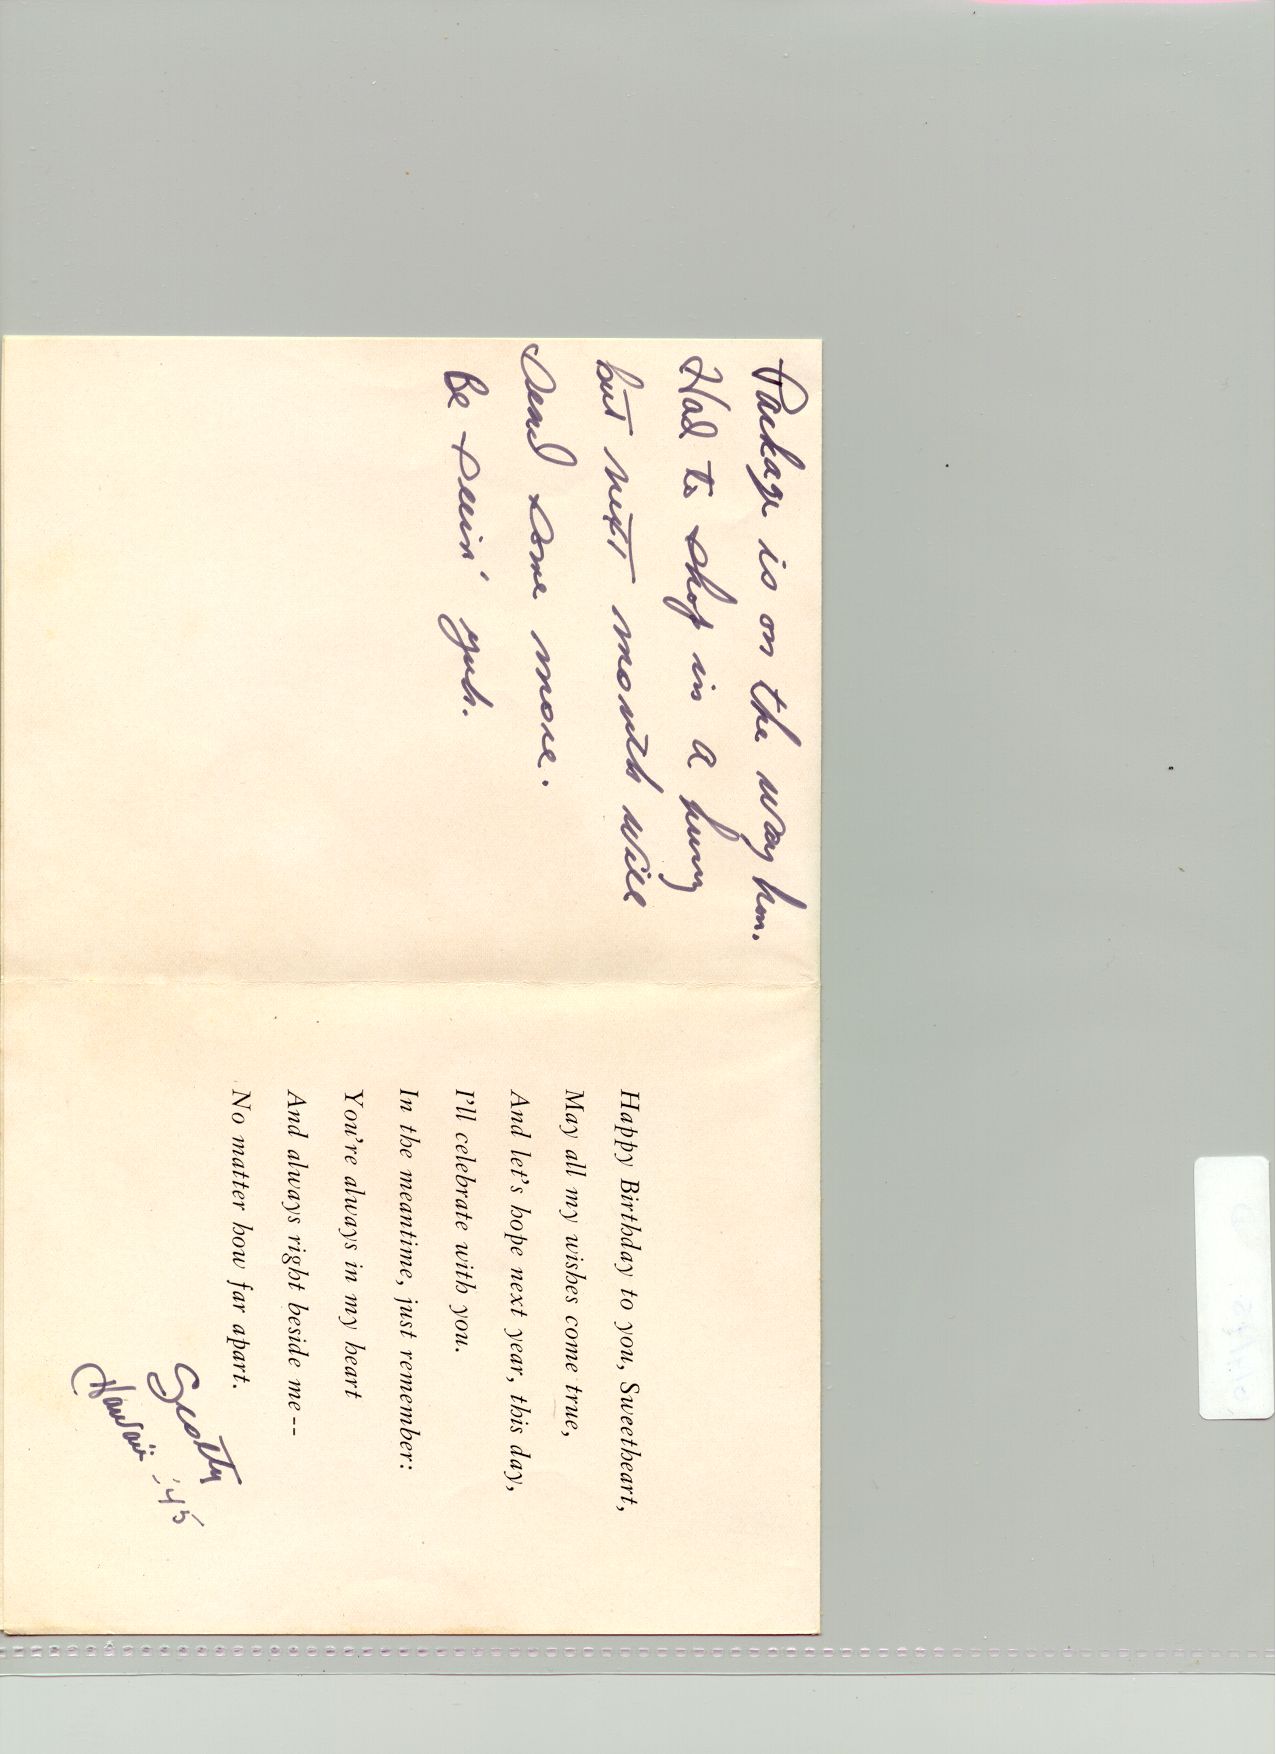 Package is on the way hon.
Had to shop in a hurry
but next month will
send some more.
Be seein' yuh.
Happy Birthday to you, Sweetheart,
May all my wishes come true,
And let's hope next year, this day,
I'll celebrate with you.
In the meantime, just remember:
You're always in my heart
And always right beside me--
No matter how far apart.
Scotty
Hawaii - '45